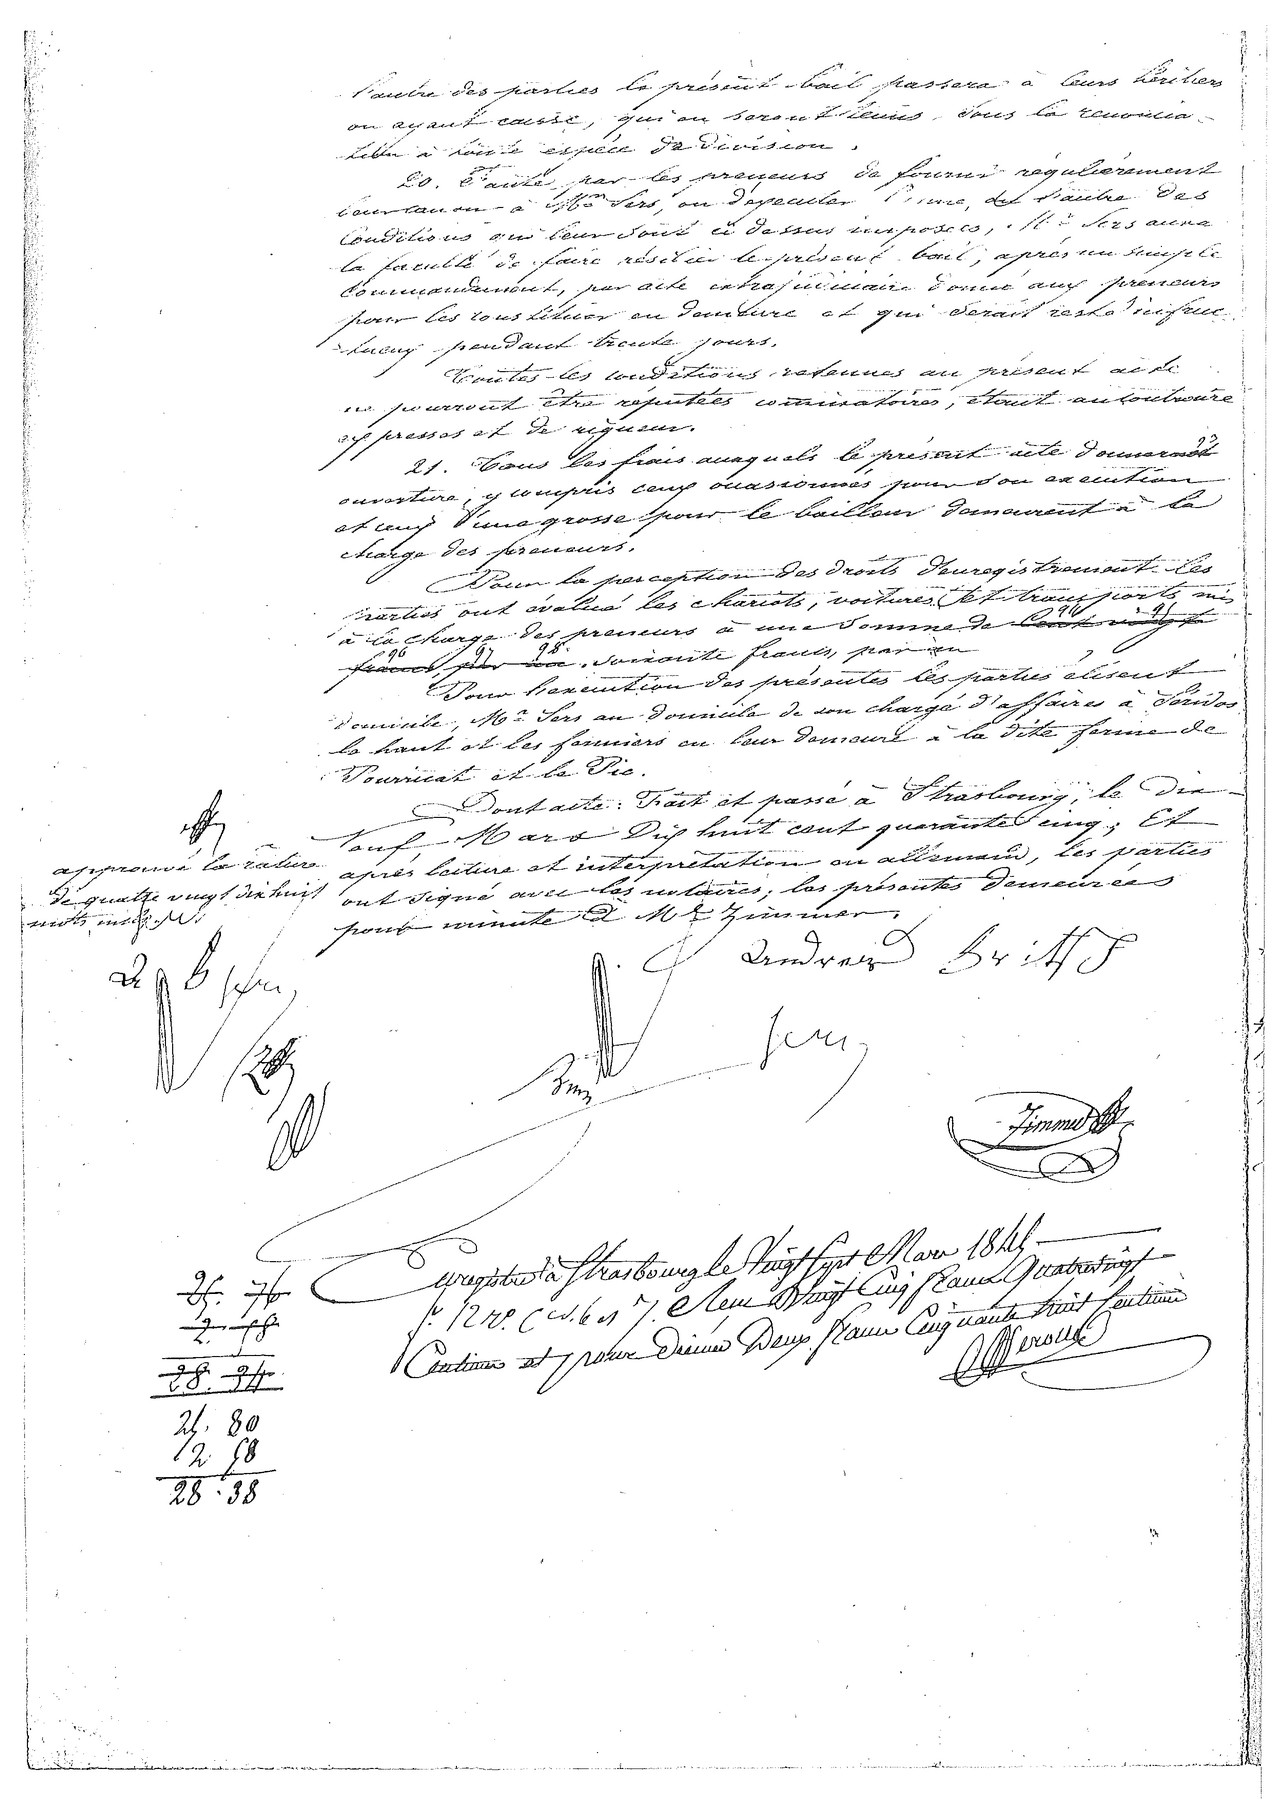 l'autre des parties le présent bail passera à leurs héritiers
ou ayant cause, qui en seront tenus sous la renoncia-
tion à toute espèce de division.
20. Faute par les preneurs de fournir régulièrement
leur canon à Mr Sers, ou d'exécuter l'une, ou l'autre des
conditions qui leur sont ci dessus imposées, Mr Sers aura
la faculté de faire résilier le présent bail, après un simple
commandement, par acte extrajudiciaire donné aux preneurs
pour les constituer en demeure et qui serait resté infruc-
tueux pendant trente jours.
Toutes les conditions retenues au présent acte
ne pourront être réputées comminatoires, étant au contraire
expresses et de rigueur.
21. Tous les frais auxquels le présent acte donnera
ouverture, y compris ceux occasionnés pour son exécution
et ceux d'une grosse pour le bailleur demeurent à la
charge des preneurs.
Pour la perception des droits d'enregistrement les
parties ont évalué les chariots, voitures et transports mis
à la charge des preneurs à une somme de cent vingt
francs par an. soixante francs, par an
Pour l'exécution des présentes les parties élisent
domicile, Mr Sers au domicile de son chargé d'affaires à
le haut et les fermiers en leur demeure à la dite ferme de
Pourricat et le Pic.
Dont acte. Fait et passé à Strasbourg, le dix-
neuf Mars Dix huit cent quarante cinq; Et
après lecture et interprétation en allemand, les parties
ont signé avec les notaires; les présentes demeurées
pour minute à Me Zimmer.
approuvé la rature
de quatre vingt dix huit
mots nuls.
Andreas Britsch
Sers
Zimmer
Enregistré à Strasbourg le Vingt Sept Mars 1845.
f. 12 ro. c. 6 et 7. Reçu Vingt Cinq francs Quatrevingt
Centimes et pour Dixme Deux francs Cinquante huit Centimes
25. 80
2. 58
28. 38